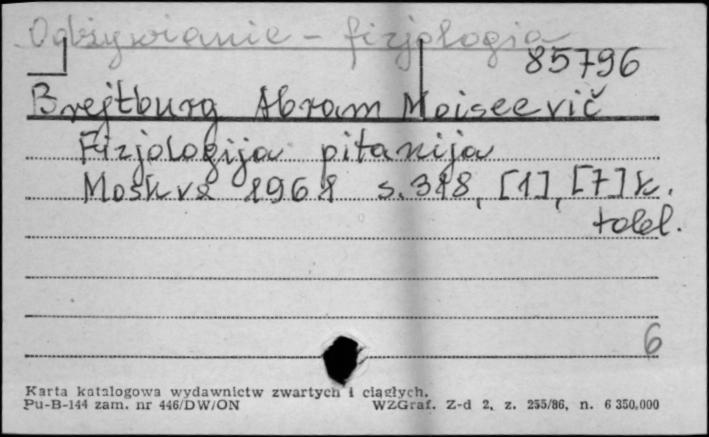 Odżywianie - fizjologia
85796
Brejtburg Abram Moiseevič
Fizjologija pitanija
Moskva 1961 s. 318, [1], [7] k.
tabl.
6
Karta katalogowa wydawnictw zwartych i ciągłych.
Pu-B-144 zam. nr 446/DW/ON WZGraf. Z-d 2, z. 255/86, n. 6 350.000